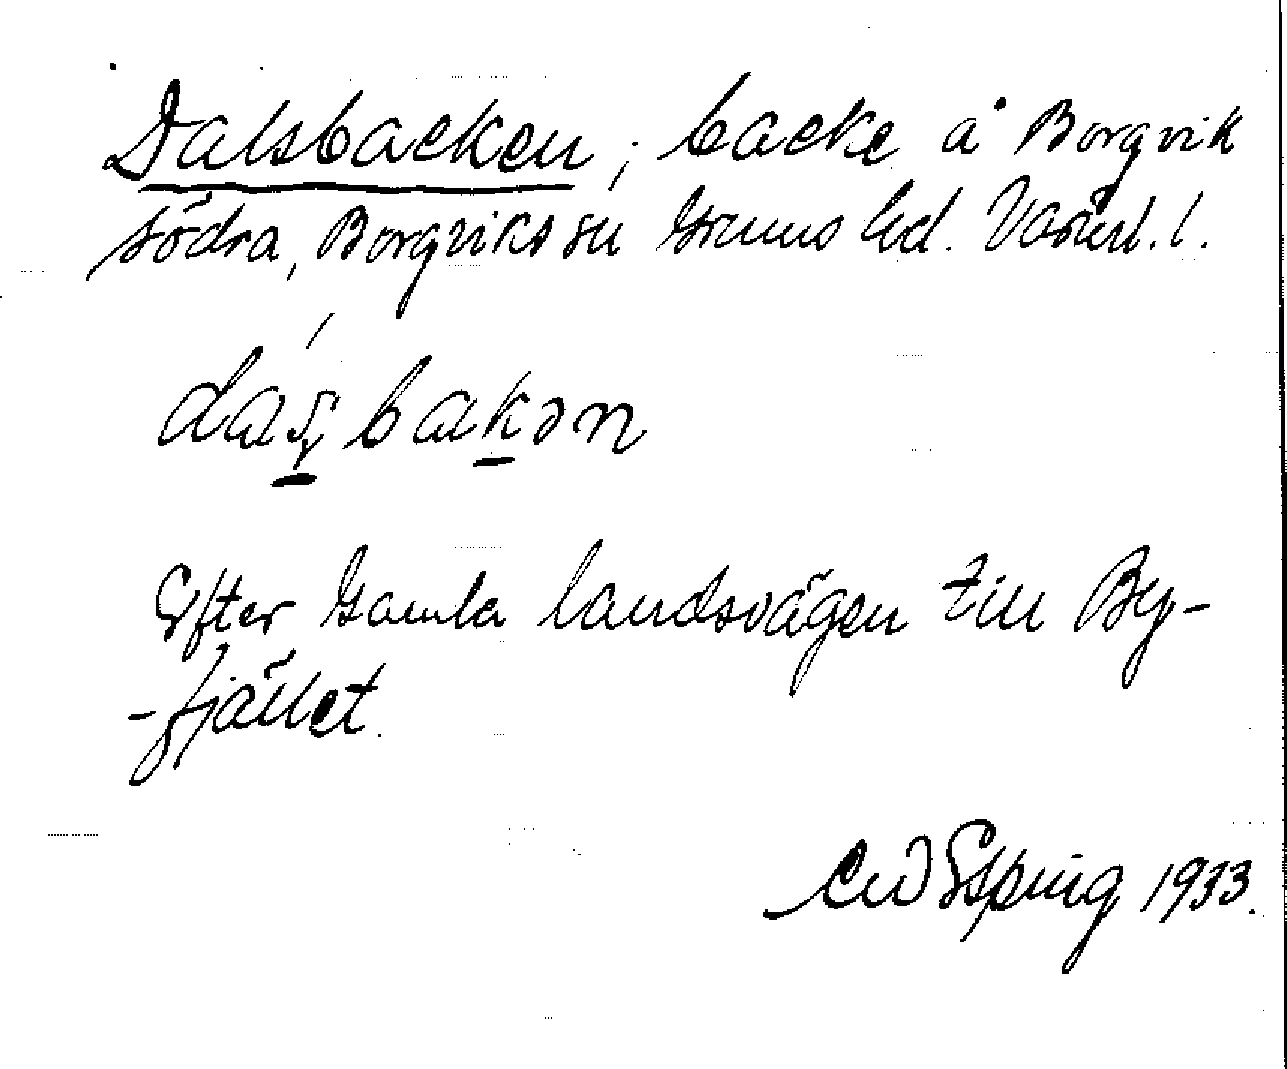 Dalsbacken; backe å Borgvik
södra, Borgviks sn Grums hd. Värml. l.
daʂbakən
Efter Gamla landsvägen till By-
-fjället.
Esping 1933.